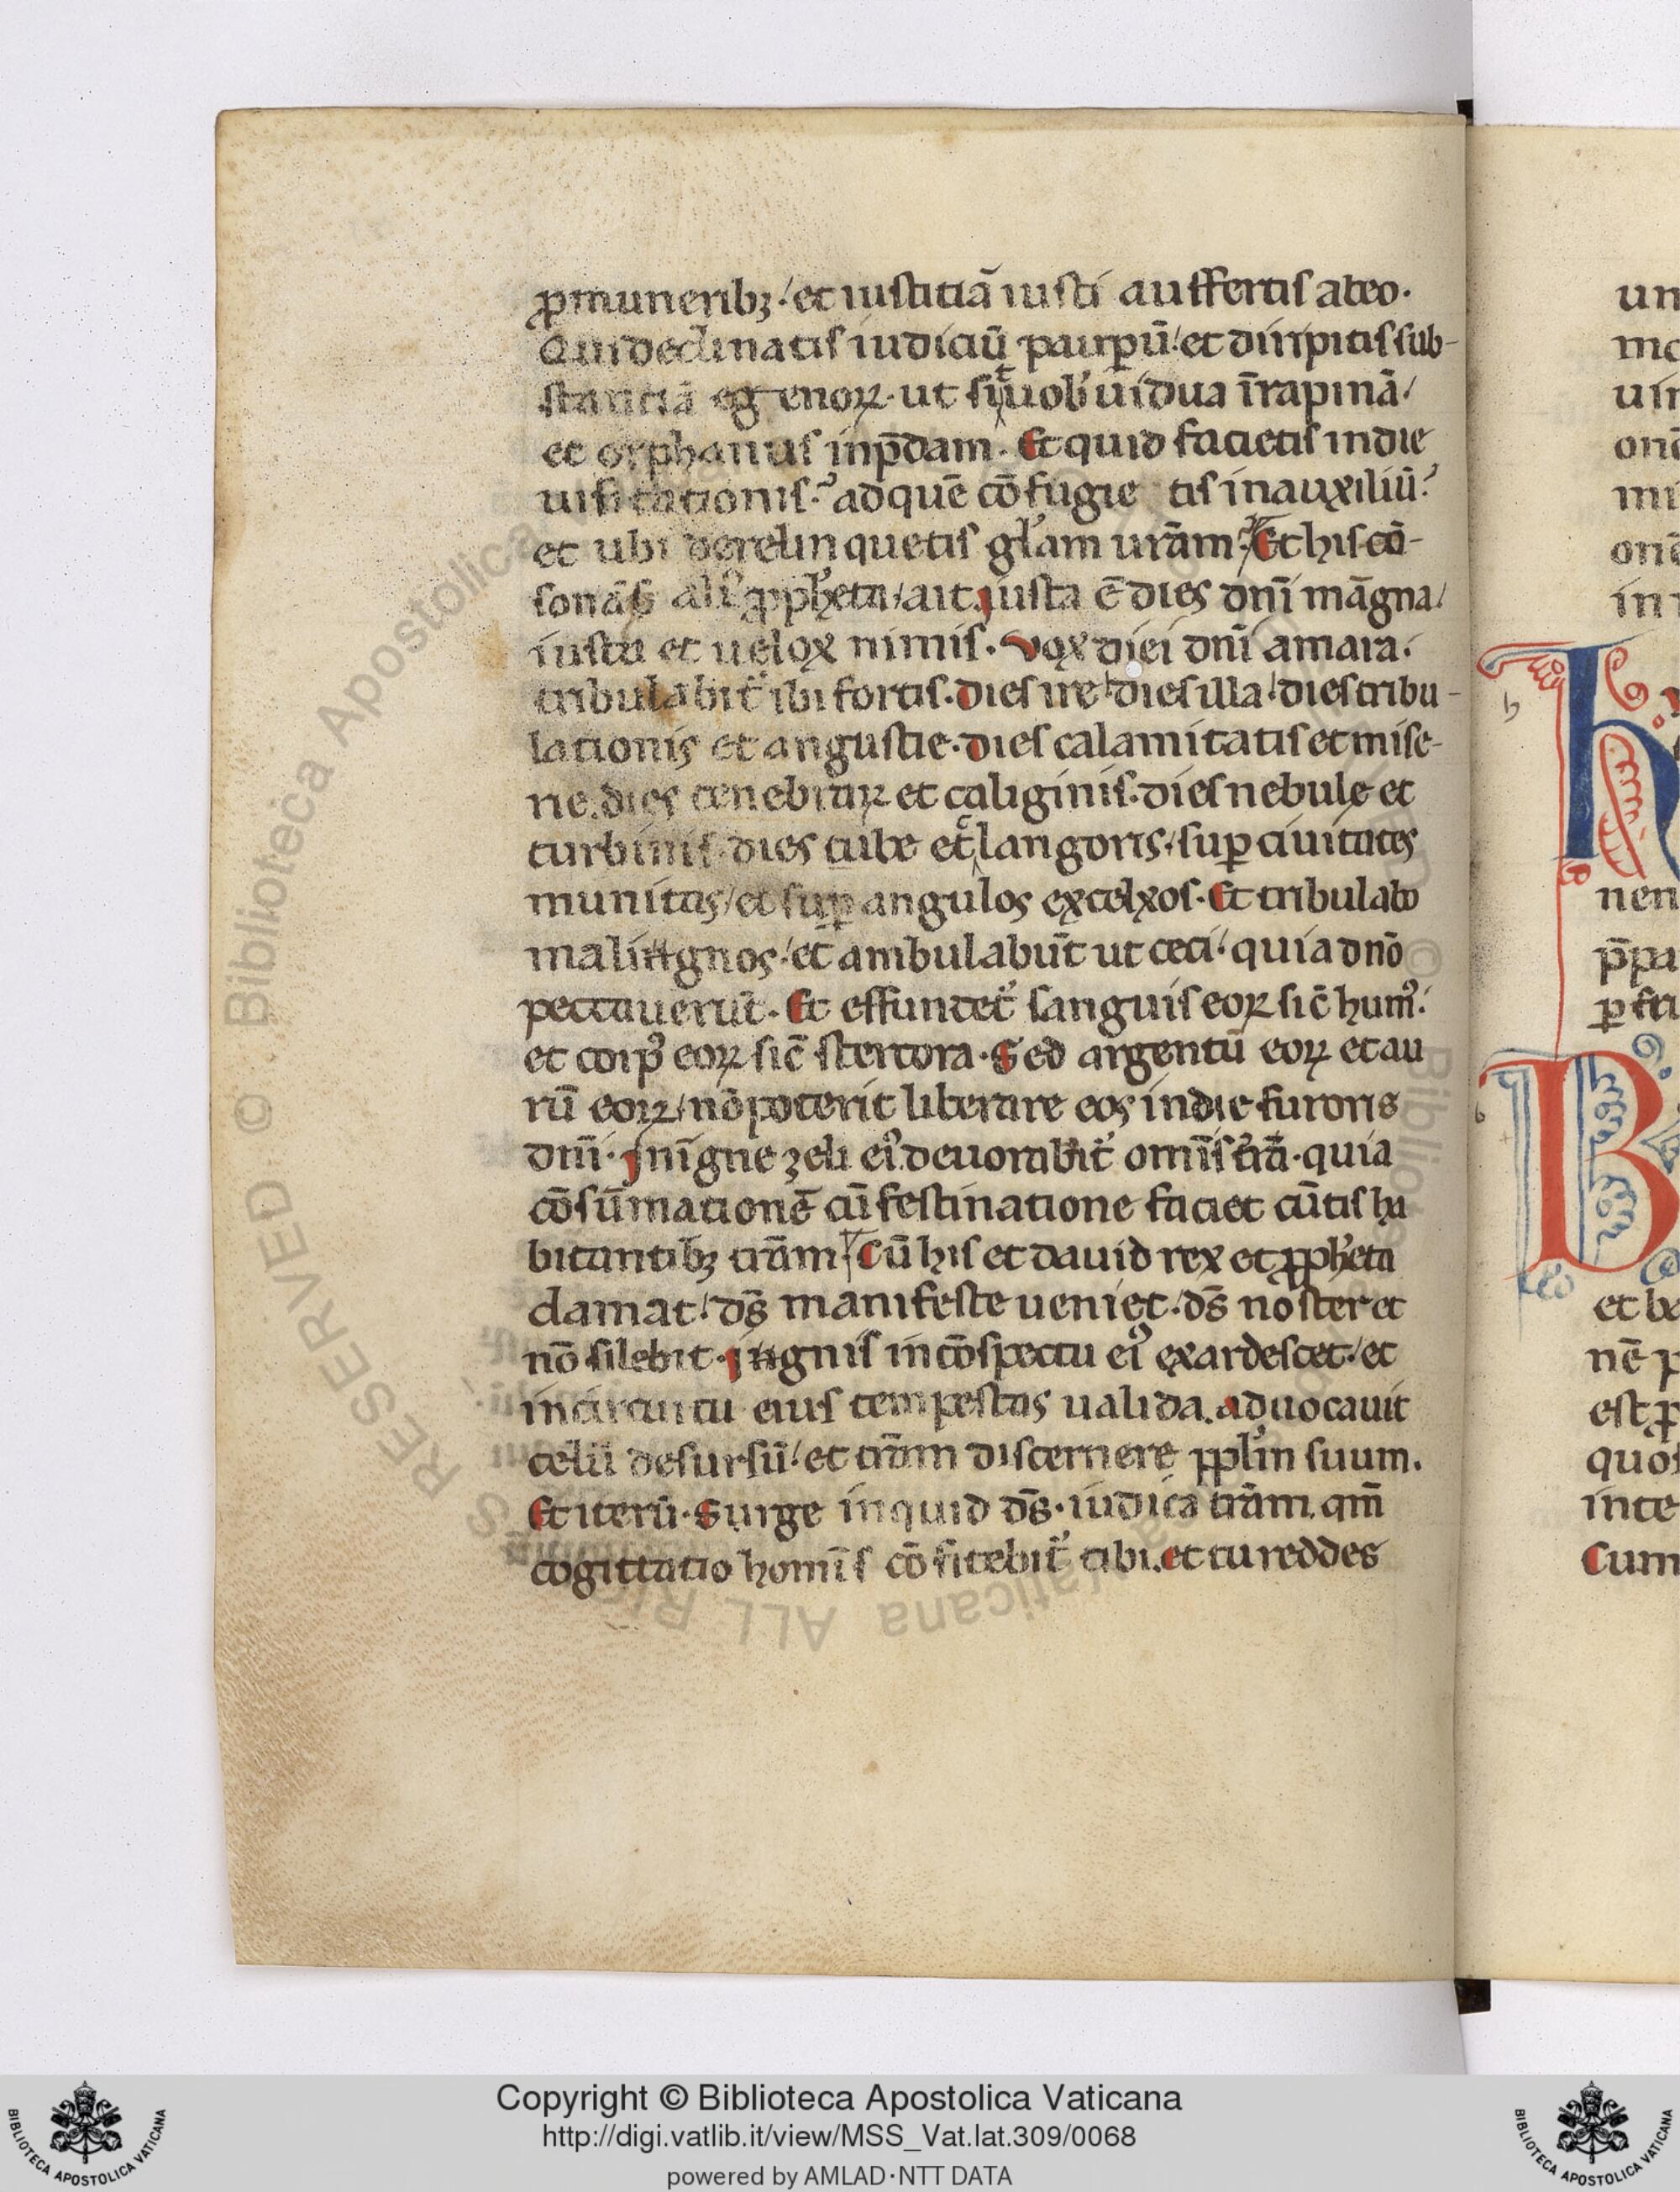 ꝓmuneribꝫ ⸍ et iustitiā iusti auffertis abeo.
Qui declinatis iudiciū paupeꝝ̄ ⸍ et diripitis sub-
stantiā egenoꝝ. ut sīt uob᾽ uidua ī rapinā /
et orphanus inp̄dam. Et quid facietis indie
uisitationis. ad quē cōfugie tis inauxiliū?
et ubi derelinquetis gl̓am ur̄am? Et his cō-
sonās̄ ali᾽ ꝓph̓eta / ait. iusta ē dies dn̄i māgna /
iusta et uelox nimis. Vox diei dn̄i amara.
tribulabit᾽ ibi fortis. dies ire ⸍ dies illa ⸍ dies tribu-
lationis et angustie. dies calamitatis et mise-
rie. dies tenebraꝝ et caliginis. dies nebule et
turbinis. dies tube et clangoris. suꝑ ciuitates
munitas / et suꝑ angulos excelxos. Et tribulabo
malingnos. et ambulabūt ut ceci ⸍ quia dno̅
peccauerūt. Et effundet᾽ sanguis eoꝝ sic̄ hum᾽.
et corp᾽ eoꝝ sic̄ stercora. Sed argentū eoꝝ et au
rū eoꝝ / nō poterit liberare eos indie furoris
dn̄i. Jn īgne zeli ei᾽ deuorabit᾽ omīs tr̄a. quia
cōsūmationē cū festinatione faciet cūtis ha
bitantibꝫ tr̄am. Cū his et dauid rex et ꝓph̓eta
clamat ⸍ ds̄ manifeste ueniet. ds̄ noster et
nō silebit. ingnis in cōspectu ei᾽ exardescet. et
in circuitu eius tempestas ualida. aduocauit
celū desursū ⸍ et tr̄am discernere ppl̓m suum.
Et iterū. Surge inquid ds̄. iudica tr̄am. qm̄
cogittatio homīs cōfitebit᾽ tibi. et tu reddes
un
mo
uir
mi
in
h
nen
p̄pa
ꝑ fe
B
et be
nē p
est ꝓ
quos
inte
Cum
© Biblioteca Apostolica Vaticana ALL RIGHTS RESERVED
Copyright © Biblioteca Apostolica Vaticana
http://digi.vatlib.it/view/MSS_Vat.lat.309/0068
powered by AMLAD·NTT DATA
BIBLIOTECA APOSTOLICA VATICANA
BIBLIOTECA APOSTOLICA VATICANA